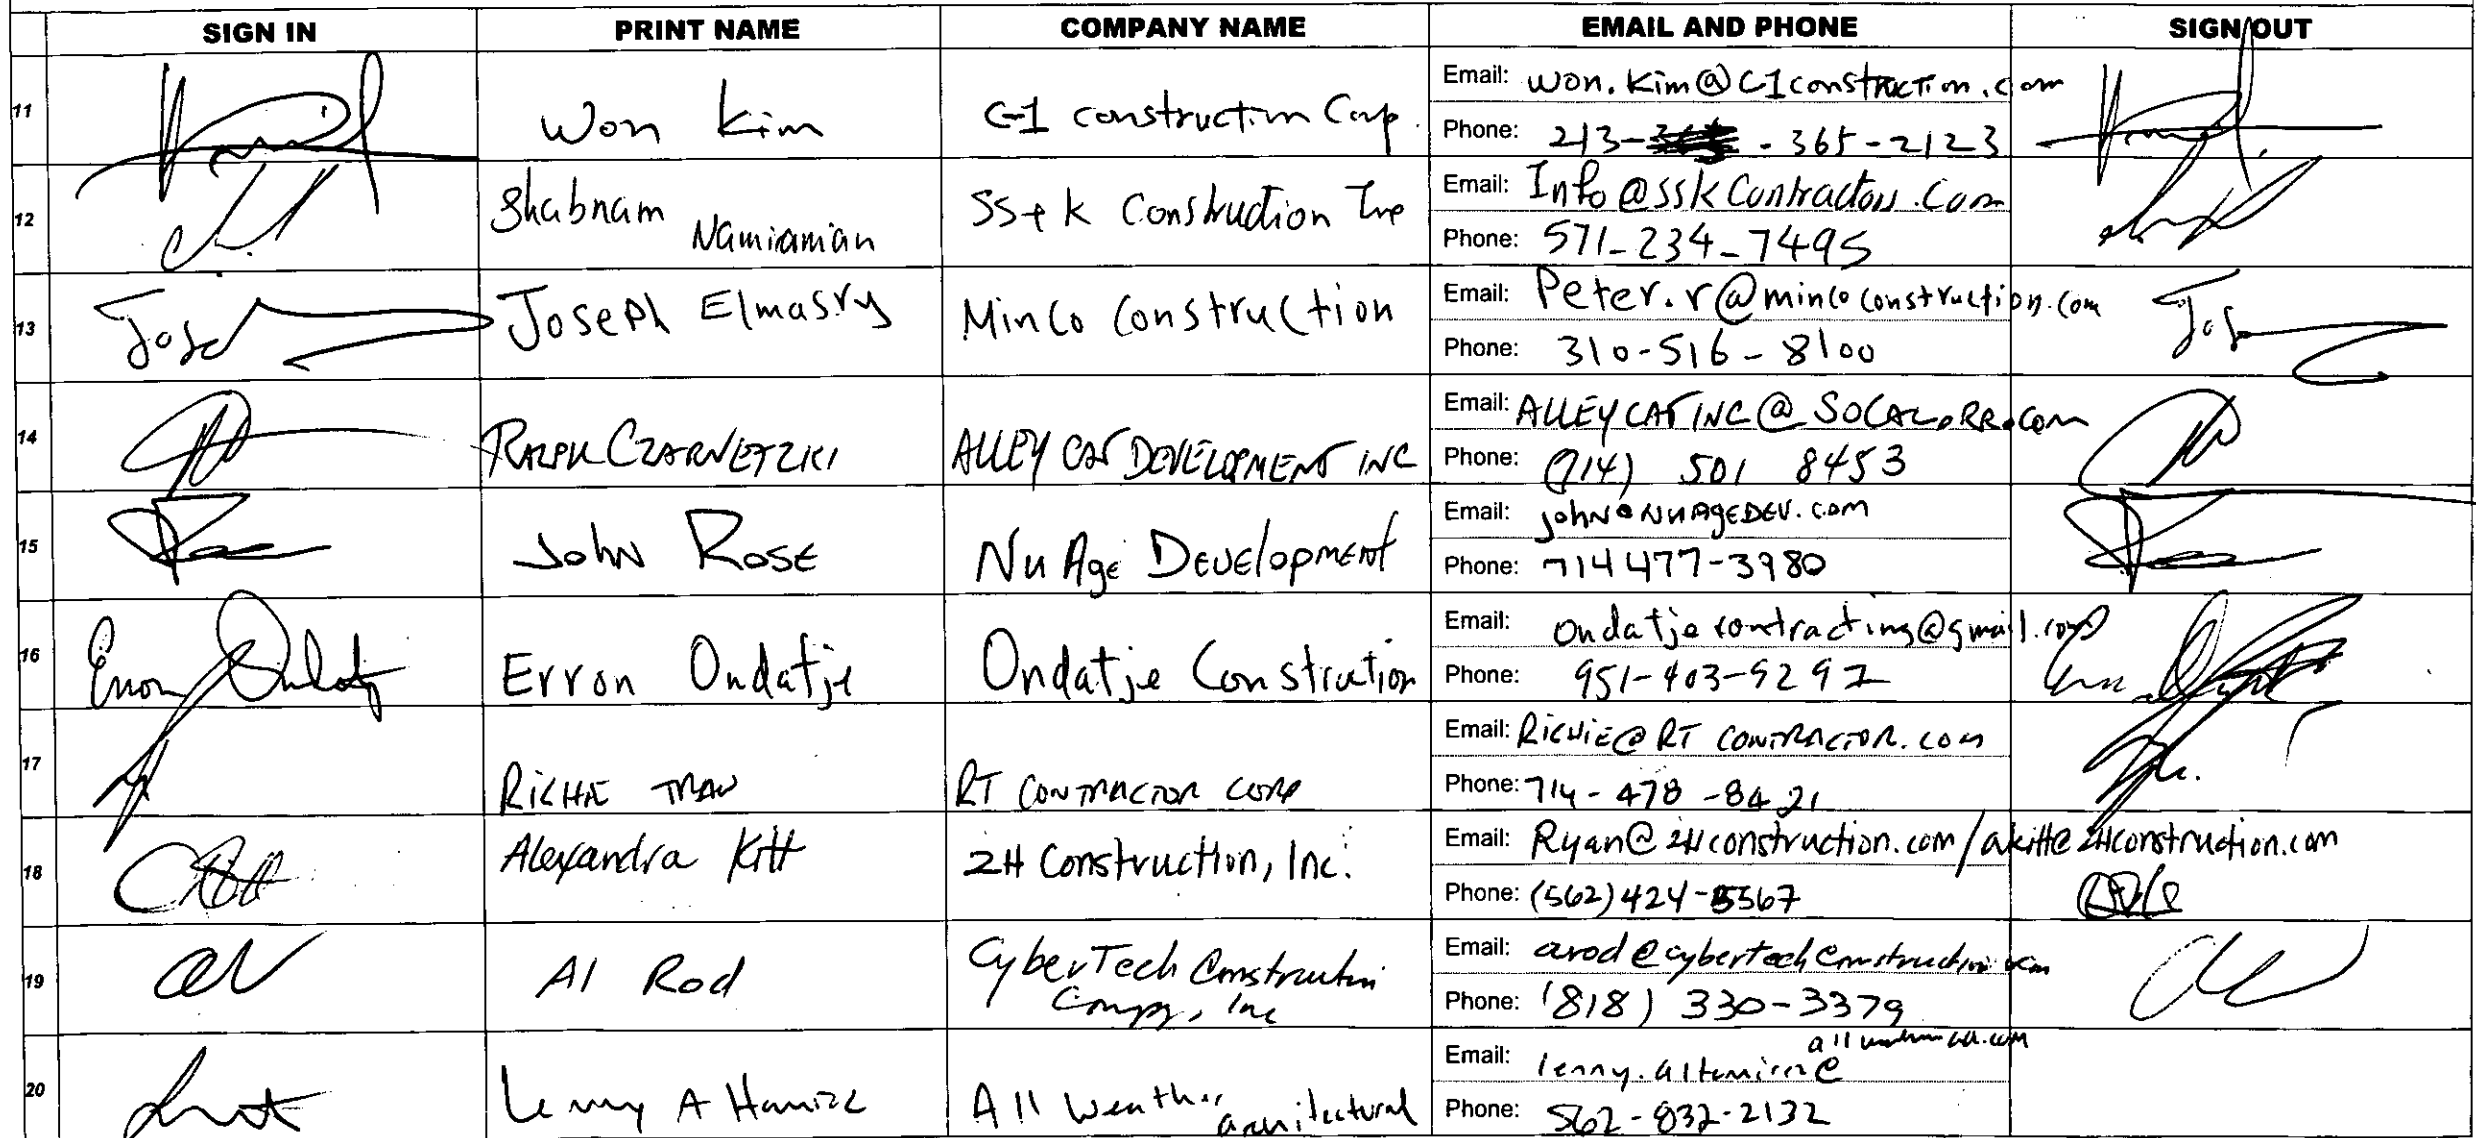 SIGN IN PRINT NAME COMPANY NAME EMAIL AND PHONE SIGN OUT
11 Won Kim C-1 construction Corp. Email: won.kim@C1construction.com
Phone: 213- - 365-2123
12 Shabnam Namiamian SS+K Construction Inc Email: Info@sskContractors.Com
Phone: 571-234-7495
13 Joseph Elmasry MinCo Construction Email: Peter.r@mincoconstruction.com
Phone: 310-516-8100
14 RALPH CZARNETZKI ALLEY CAT DEVELOPMENT INC Email: ALLEYCATINC@SOCAL.RR.COM
Phone: (714) 501 8453
15 John Rose Nu Age Development Email: john@NuAgeDev.com
Phone: 714 477-3980
16 Erron Ondatje Ondatje Constrution Email: ondatjecontracting@gmail.com
Phone: 951-403-9297
17 RiCHIE TRAN RT CONTRACTOR CORP Email: RICHIE@RTCONTRACTOR.COM
Phone: 714-478-8421
18 Alexandra Kitt 2H Construction, Inc. Email: Ryan@2Hconstruction.com/akitt@2Hconstruction.com
Phone: (562)424-5567
19 Al Rod CyberTech Construction
Compy, Inc Email: arod@cybertechconstruction.com
Phone: (818) 330-3379
20 Lenny Altamirano All Weather architectural Email: lenny.altamirano@
Phone: 562-832-2132